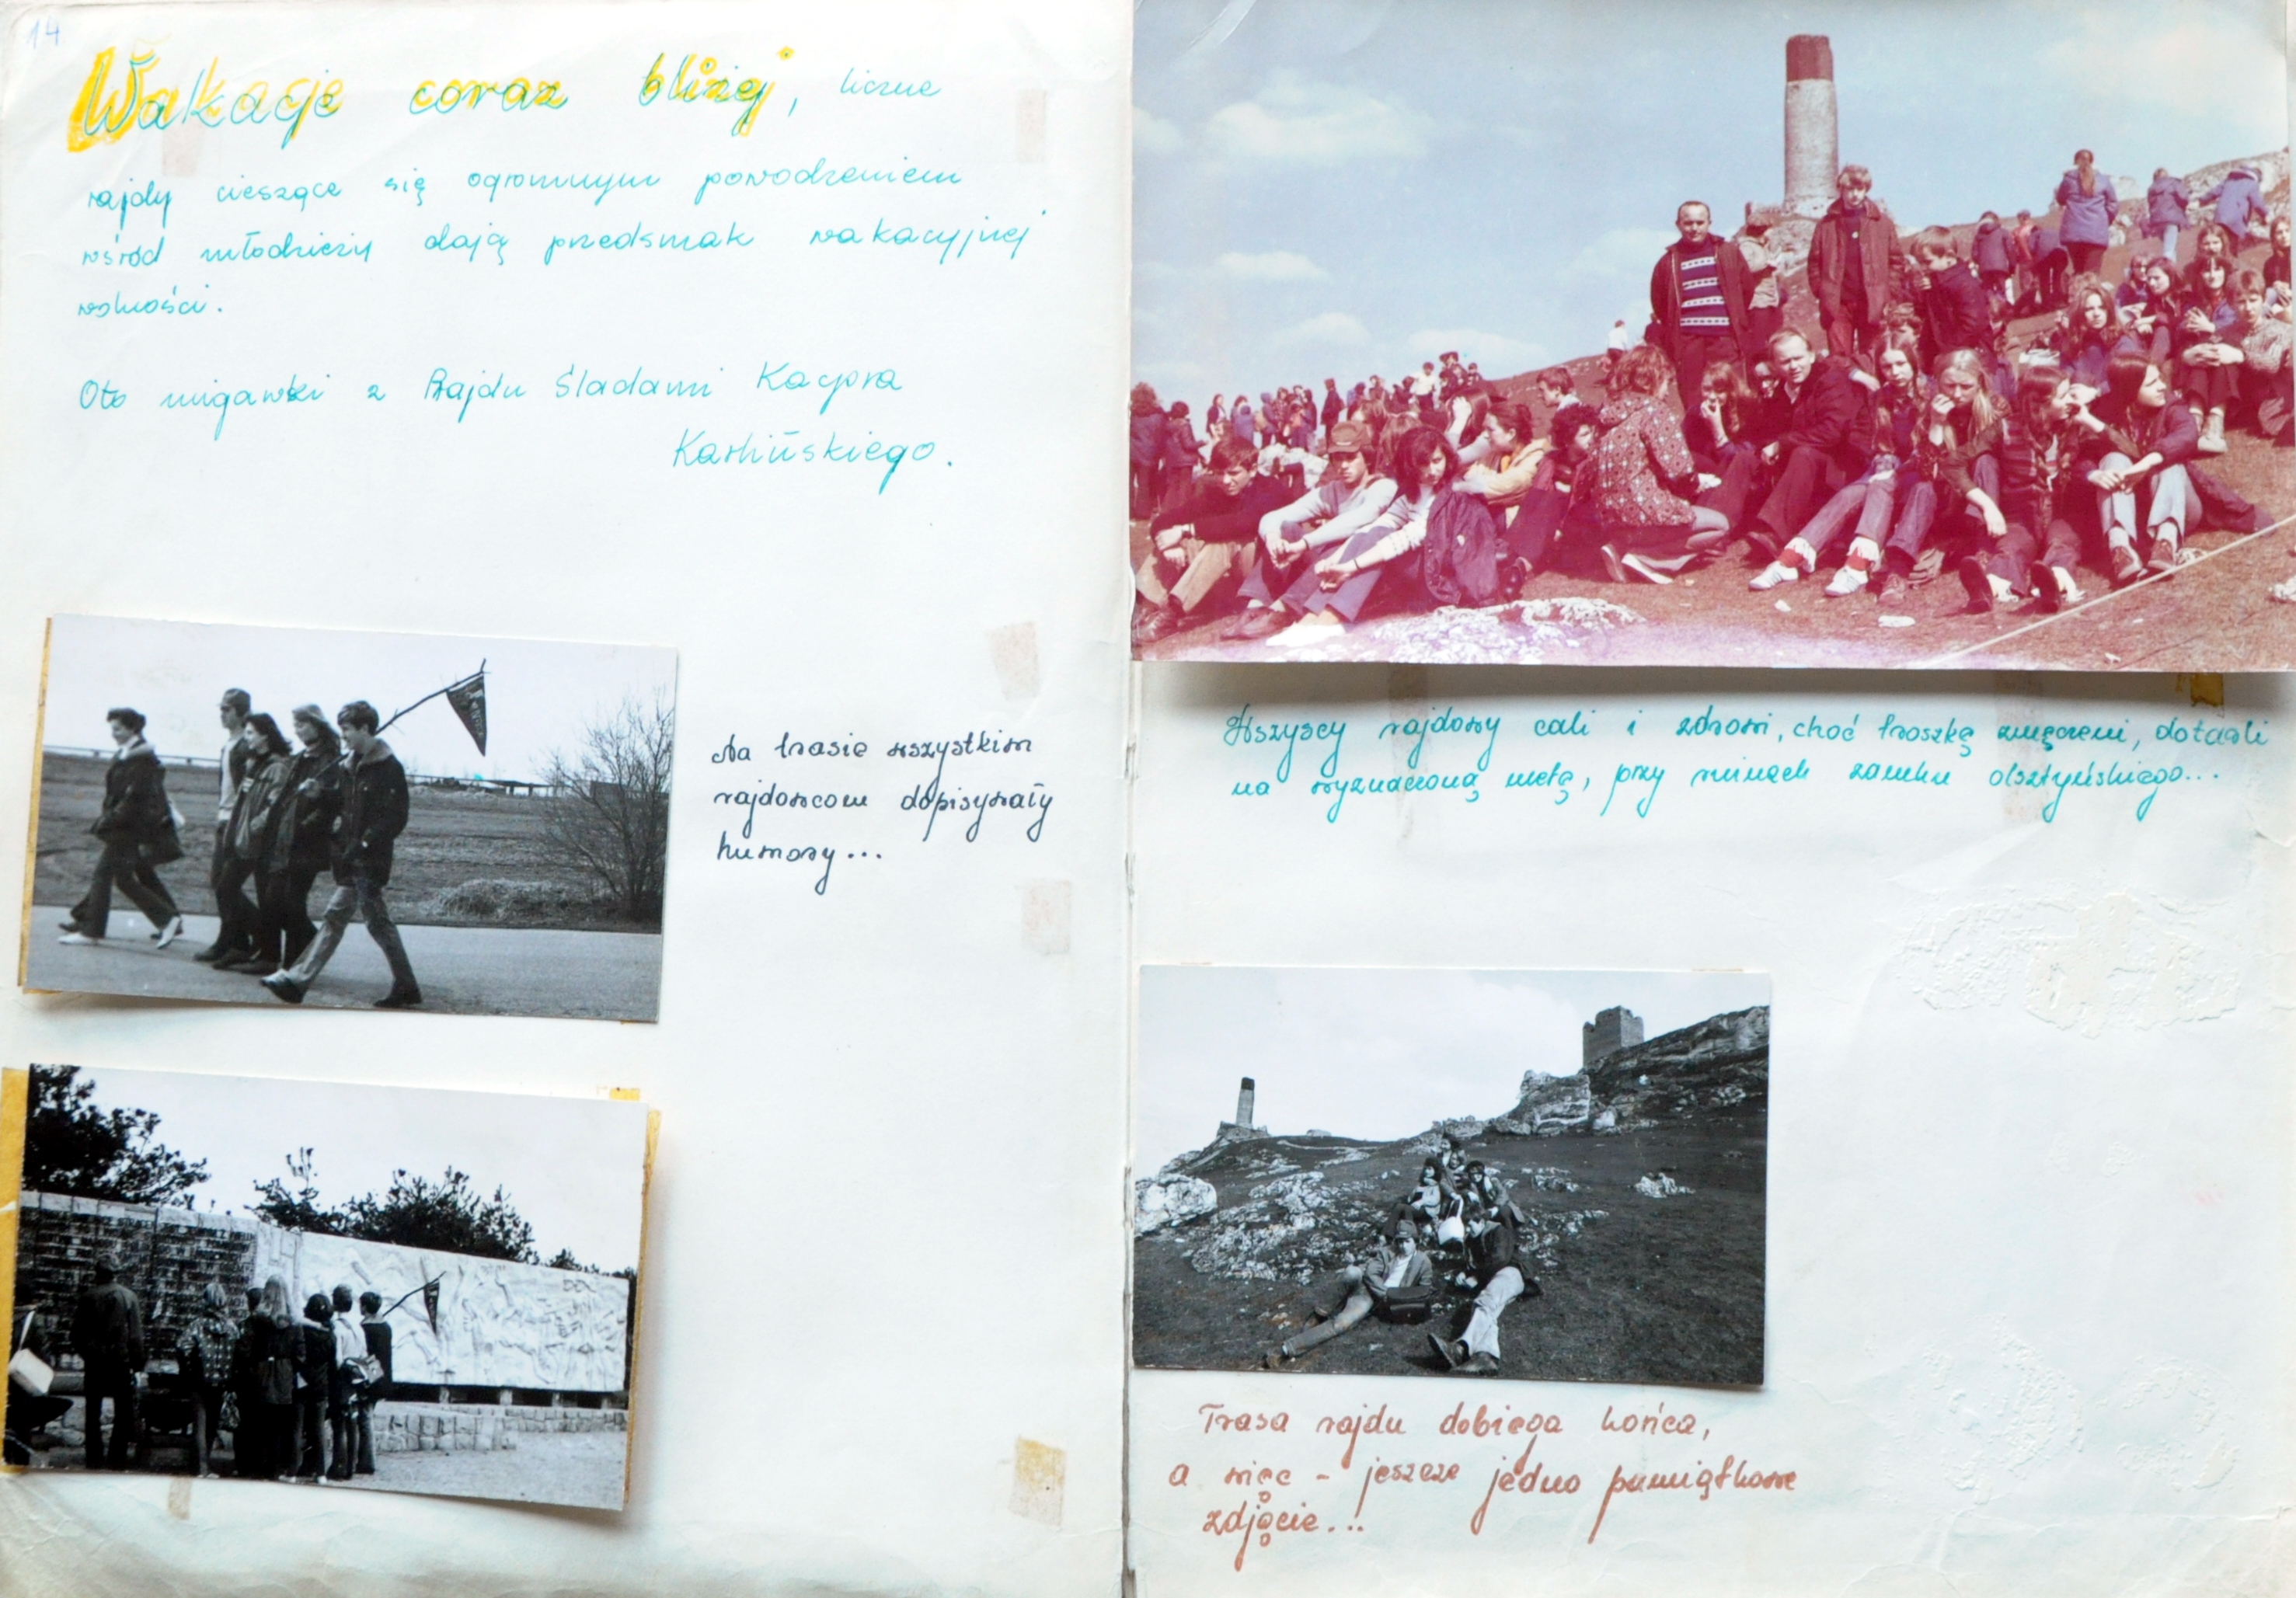 14
Wakacje coraz bliżej, liczne
rajdy cieszące się ogromnym powodzeniem
wśród młodzieży dają przedsmak wakacyjnej
wolności.
Oto migawki z Rajdu Śladami Kacpra
Karlińskiego.
Na trasie wszystkim
rajdowcom dopisywały
humory...
Wszyscy rajdowy cali i zdrowi, choć troszkę zmęczeni, dotarli
na wyznaczoną metę, przy ruinach zamku olsztyńskiego...
Trasa rajdu dobiega końca,
a więc - jeszcze jedno pamiątkowe
zdjęcie...